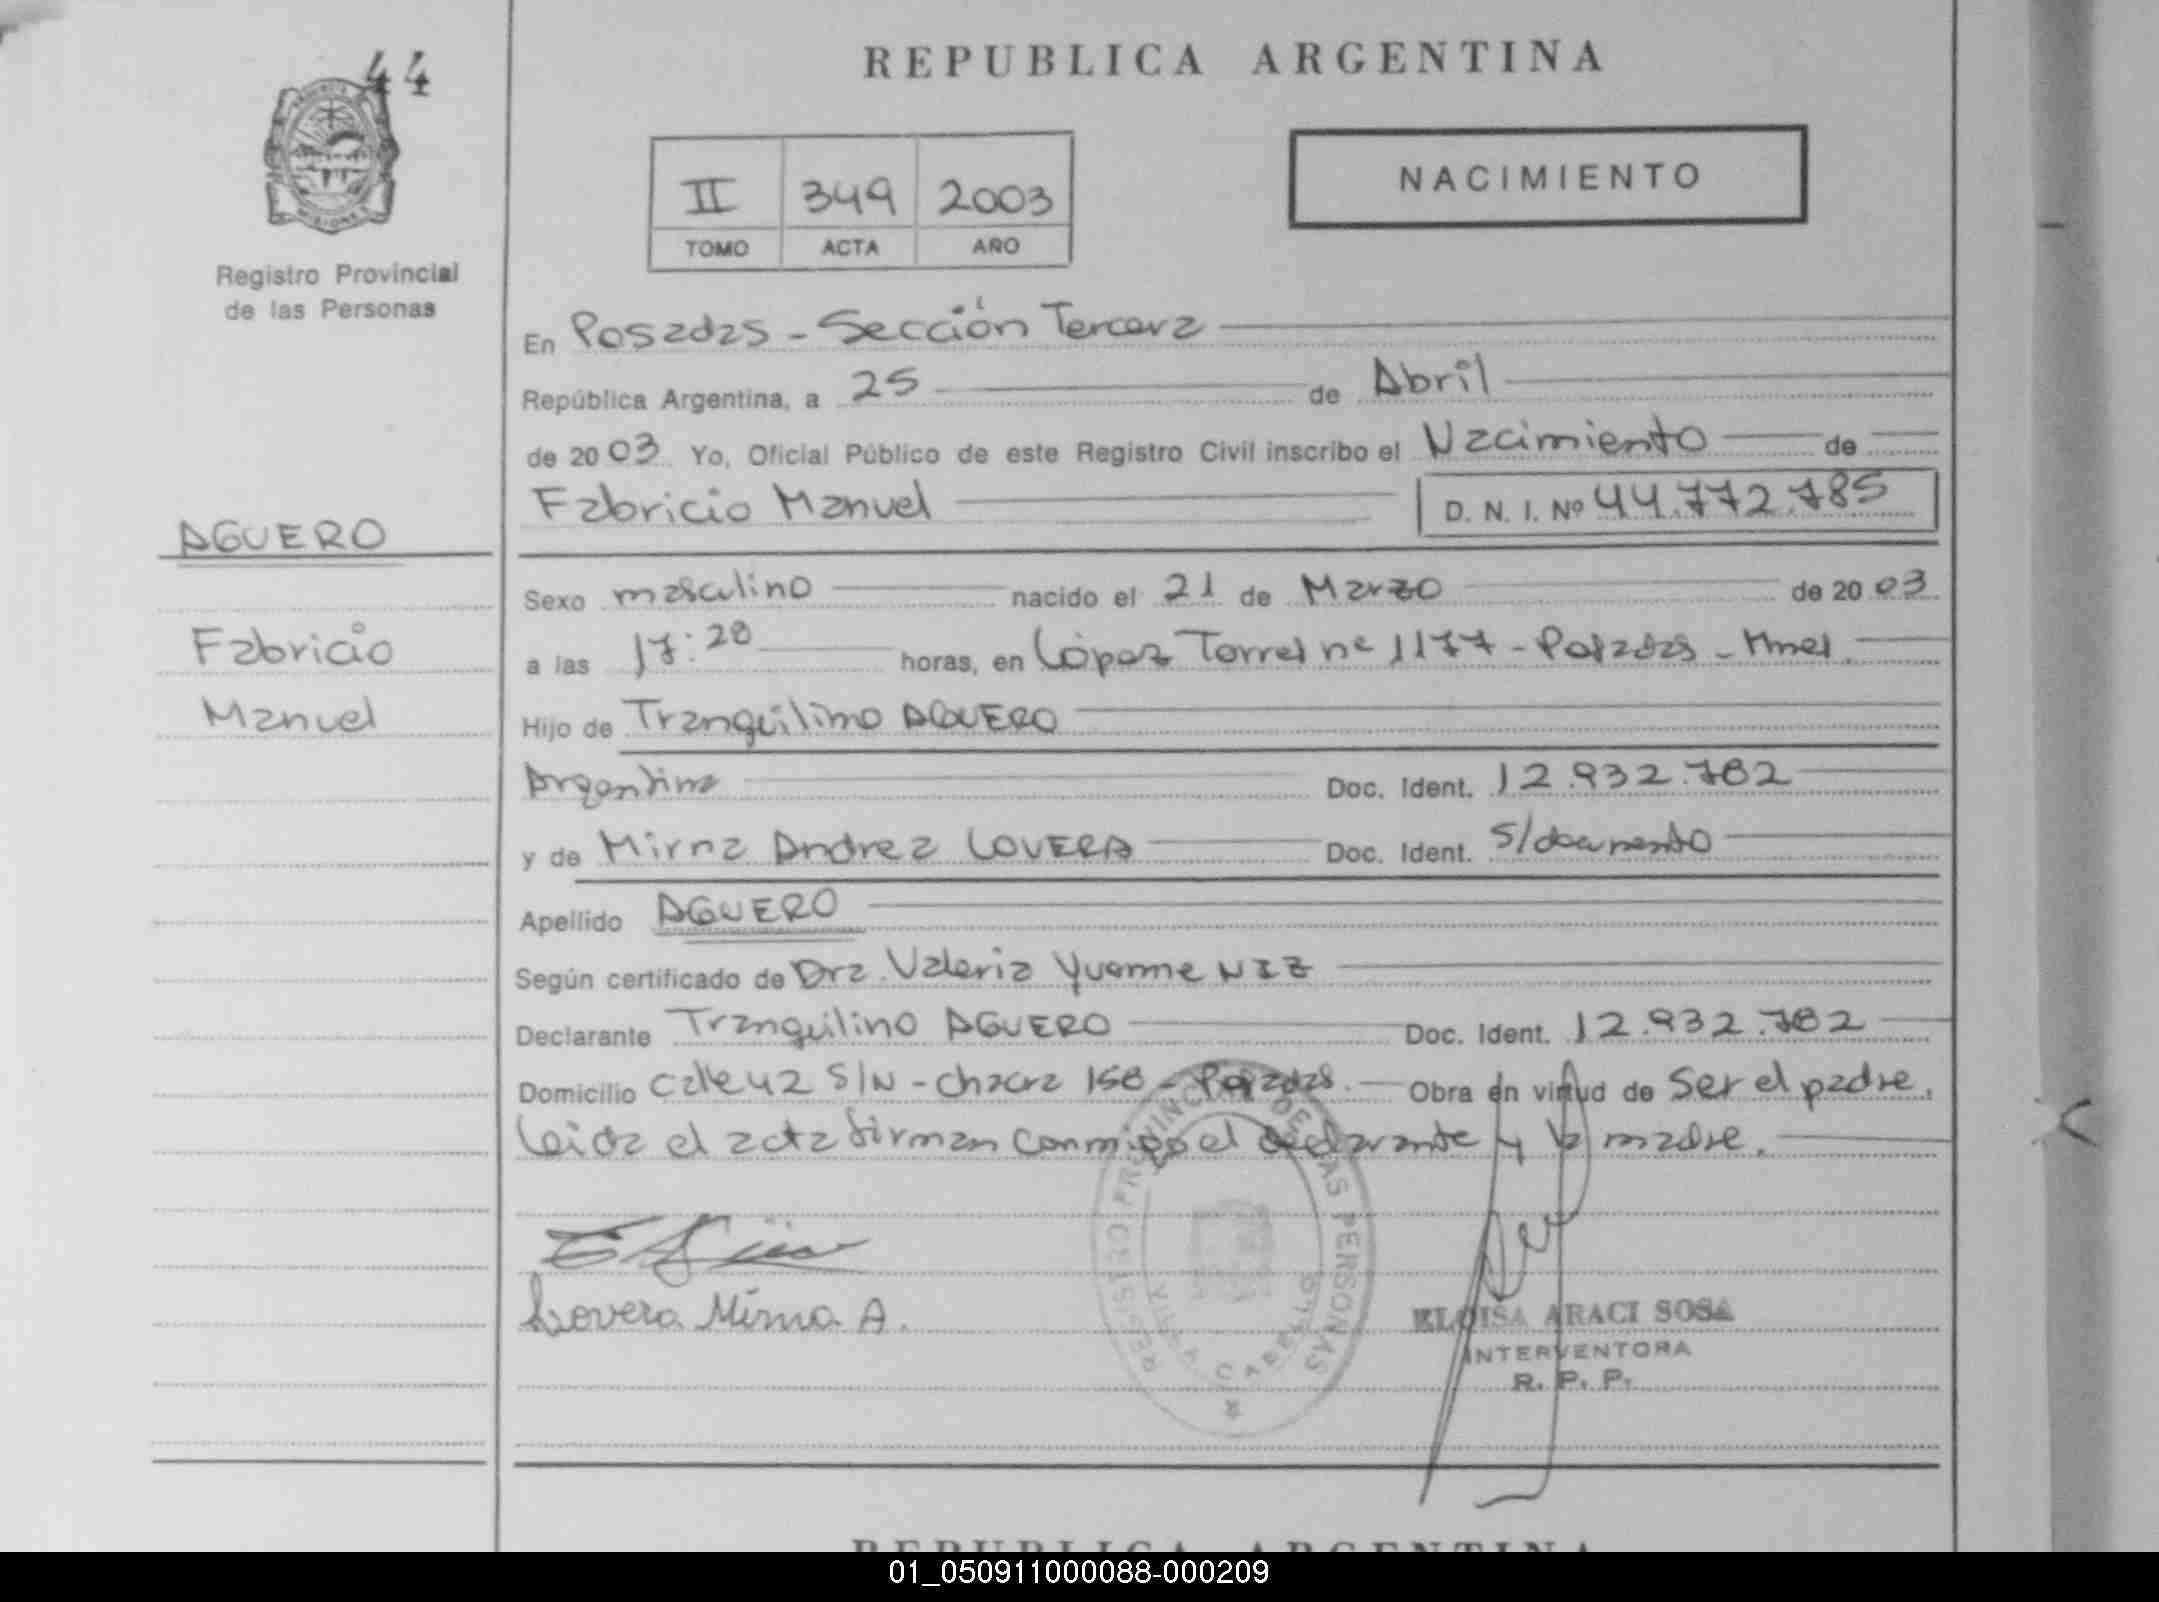 44
REPUBLICA ARGENTINA
II 349 2003
TOMO ACTA AÑO
NACIMIENTO
Registro Provincial
de las Personas
En Posadas - Sección Tercera
República Argentina, a 25 de Abril
de 2003 Yo, Oficial Público de este Registro Civil inscribo el Nacimiento de
Fabricio Manuel D. N. I. Nº 44.772.785
AGUERO
Fabricio
Manuel
Sexo masculino nacido el 21 de Marzo de 2003
a las 17:20 horas, en López Torres nº 1177 - Posadas - Mnes.
Hijo de Tranquilino AGUERO
Argentino Doc. Ident. 12.932.782
y de Mirna Andrea LOVERA Doc. Ident. S/documento
Apellido AGUERO
Según certificado de Dra. Valeria Yvonne NIZ
Declarante Tranquilino AGUERO Doc. Ident. 12.932.782
Domicilio Calle 42 S/N - chacra 158 - Posadas. Obra en virtud de Ser el padre.
Leida el acta firman conmigo el declarante y la madre.
REGISTRO PROVINCIAL DE LAS PERSONAS
VILLA CABELLO
Lovera Mirna A.
ELOISA ARACI SOSA
INTERVENTORA
R. P. P.
REPUBLICA ARGENTINA
01_050911000088-000209